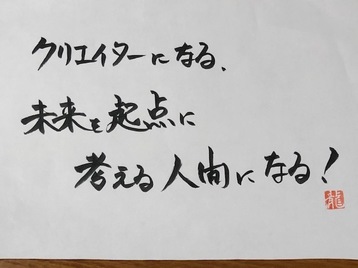 クリエイターになる、
未来を起点に
考える人間になる!
龍